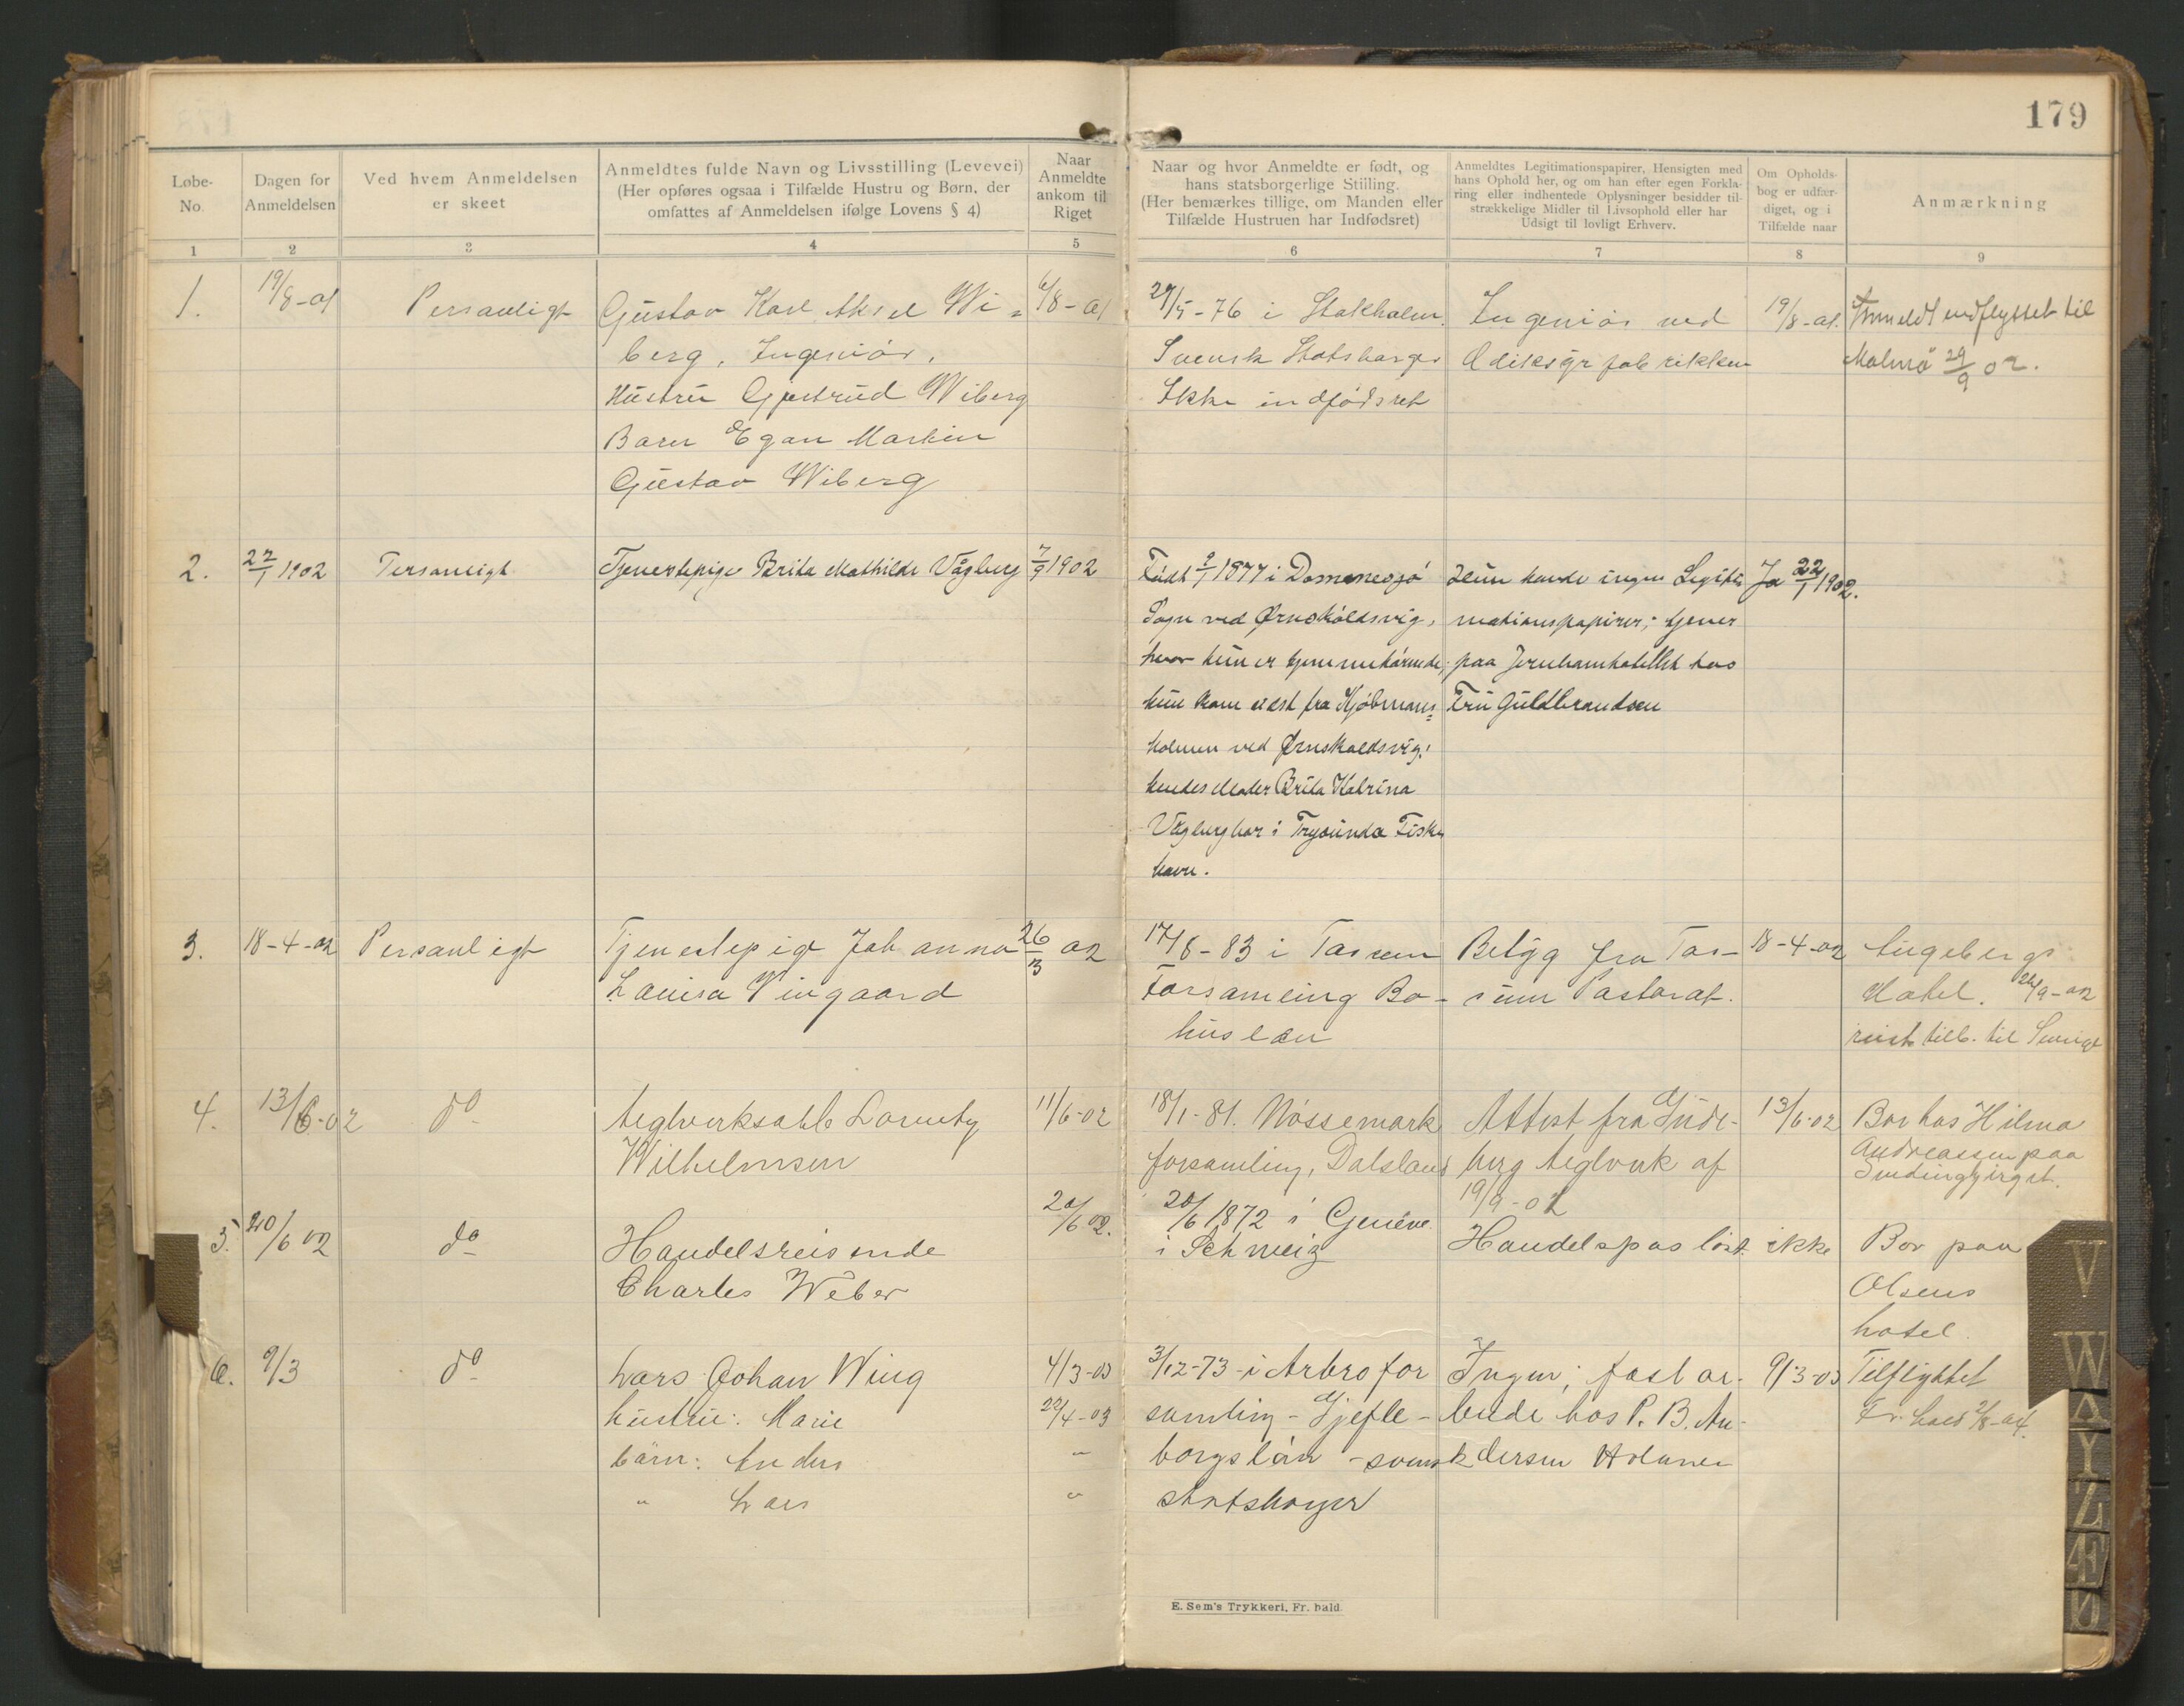 179
Løbe-No.
Dagen for Anmeldelsen
Ved hvem Anmeldelsen er skeet
Anmeldtes fulde Navn og Livsstilling (Levevei)
(Her opføres ogsaa i Tilfælde Hustru og Børn, der
omfattes af Anmeldelsen ifølge Lovens § 4)
Naar
Anmeldte
ankom til
Riget
Naar og hvor Anmeldte er født, og
hans statsborgerlige Stilling.
(Her bemærkes tillige, om Manden eller
Tilfælde Hustruen har Indfødsret)
Anmeldtes Legitimationspapirer, Hensigten med
hans Ophold her, og om han efter egen Forkla-
ring eller indhentede Oplysninger besidder til-
strækkelige Midler til Livsophold eller har
Udsigt til lovligt Erhverv.
Om Opholds-
bog er udfær-
diget, og i
Tilfælde naar
Anmærkning
1 2 3 4 5 6 7 8 9
1.
19/8-01
Personligt
Gustav Karl Aksel Wi-
berg, Ingeniør,
Hustru Gjertrud Wiberg
Barn Egon Martin
Gustav Wiberg
6/8-01
29/5-76 i Stokholm.
Svensk Statsborger
Ikke indfødsret
Ingeniør ved
fabrikken
19/8-01.
Anmeldt udflyttet til
Malmø 29/9 02.
2.
22/1 1902
Personligt
Tjenestepige Brita Mathilde Vågberg
7/9 1902
Født 2/1 1877 i Domnesjø
Sogn ved Ørnskøldsvig,
hvor hun er hjemmehørende;
hun kom sidst fra Kjøbmans-
holmen ved Ørnskoldsvig;
hendes Moder Brita Katrina
Vågberg bor i Trysunda Fiske
havn.
Hun havde ingen Legiti-
mationspapirer; tjener
paa Jernbanehotellet hos
Fru Guldbrandsen
Ja 22/1 1902.
3.
18-4-02
Personligt
Tjenestepige Johanna
Lovisa Vingaard
26/3 02
17/8-83 i Tossene
Forsamling Bo-
huslæn
Betyg fra Tos-
sene Pastorat.
18-4-02
Angebergs
Hotel. 24/9-02
reist tilb. til Sverige
4.
13/6-02
do
Teglverksarb
Wilhelmsen
11/6-02
18/1-81. Nössemark
forsamling, Dalsland
Attest fra Gude-
berg teglverk af
19/9-01
13/6-02
Bor hos Hilma
Andreassen paa
5.
20/6 02
do
Handelsreisende
Charles Weber
20/6 02.
20/6 1872 i Genéve
i Schweiz
Handelspas löst.
ikke
Bor paa
Olsens
hotel.
6.
9/3
do
Lars Johan Wing
hustru: Marie
börn: Anders
" Lars
4/3-03
22/4-03
"
"
3/12-73-i Arbro for
samling-Gjefle-
borgslän-svensk
statsborger
Ingen; fast ar-
beide hos P. B. An-
dersen Holmen
9/3-03
Tilflyttet
Fr.hald 2/8-04.
E. Sem's Trykkeri, Fr. hald.
V
W
Y
Z
Æ
Ø